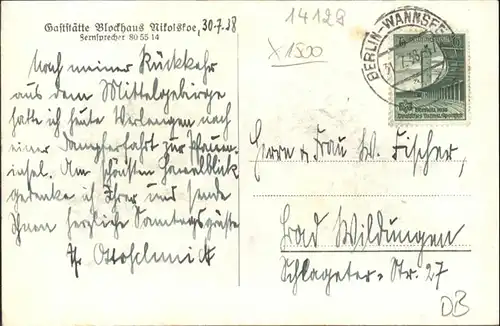 Gaststätte Blockhaus Nikolskoe, 30-7.38
Fernsprecher 80 55 14
Nach meiner Rückkehr
aus dem Mittelgebirge
hatte ich heute Verlangen nach
einer Dampferfahrt zur Pfauen-
insel. Am schönsten Havelblick
gedenke ich Ihrer und sende
Ihnen herzliche Sonntagsgrüsse
Ihr Otto Schmidt
14128
X1500
BERLIN-WANNSEE
Herrn & Frau W. Fischer,
Bad Wildungen
Schlageter-Str. 27
DB